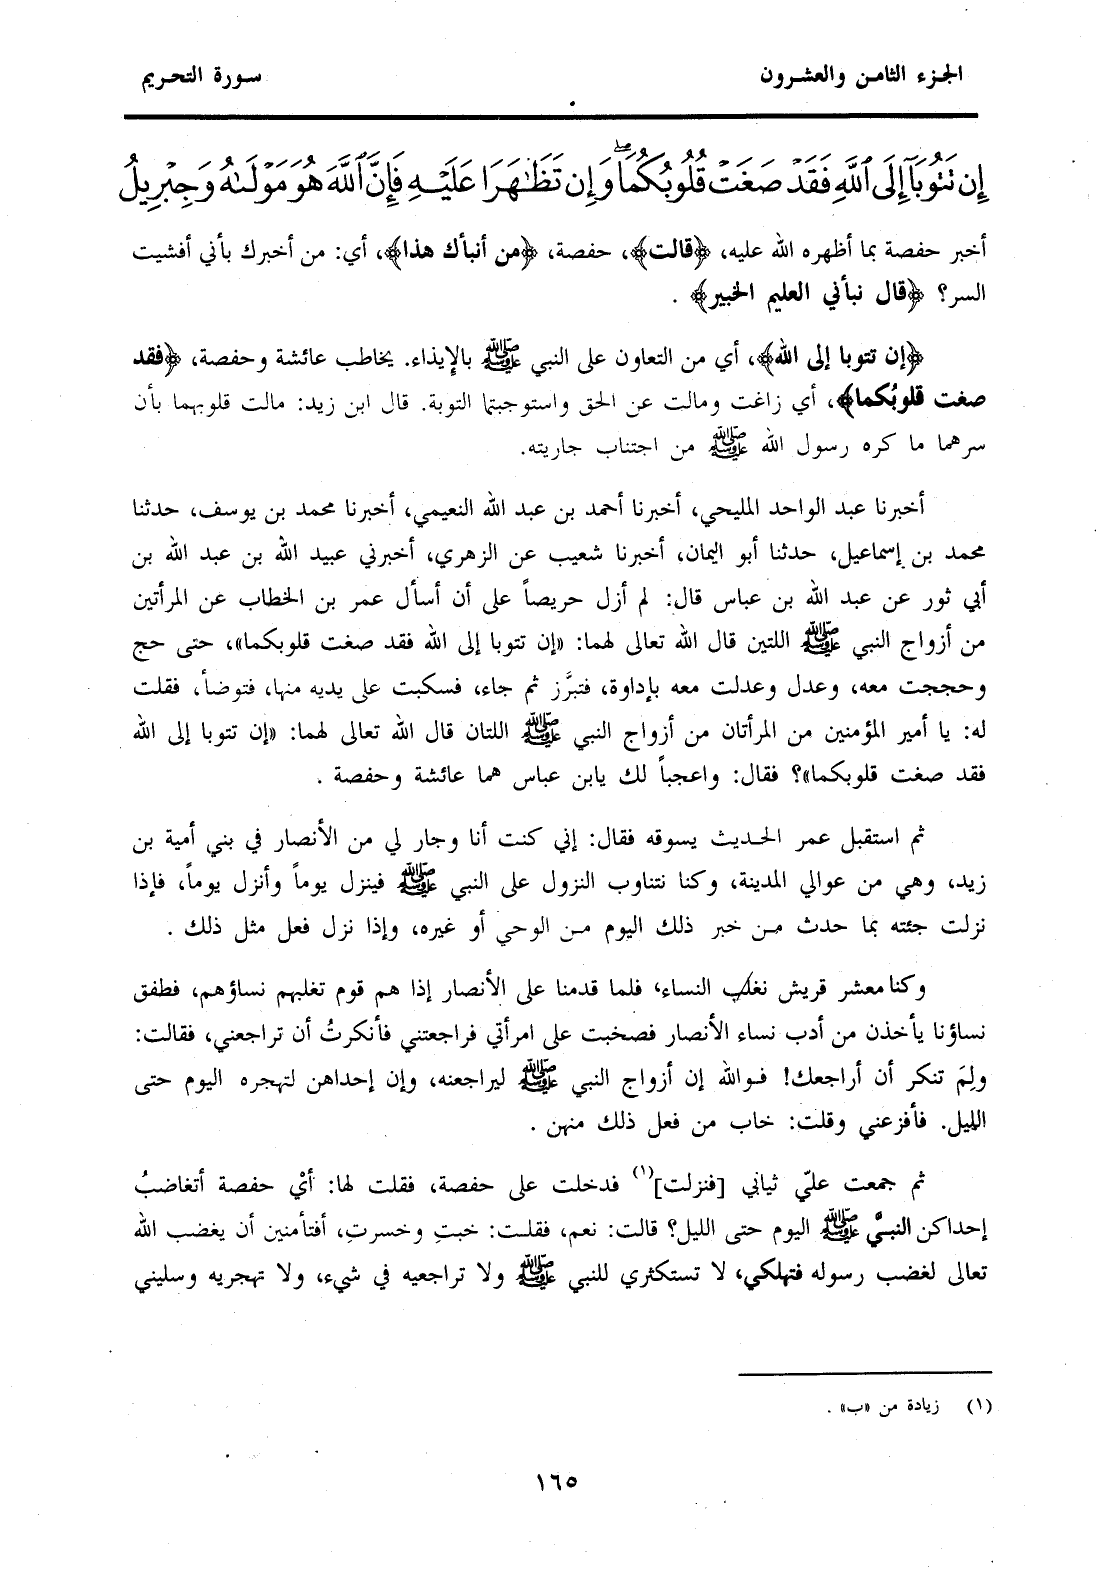 الجزء الثامن والعشرون
سورة التحريم
إِن تَتُوبَآ إِلَى ٱللَّهِ فَقَدۡ صَغَتۡ قُلُوبُكُمَاۖ وَإِن تَظَٰهَرَا عَلَيۡهِ فَإِنَّ ٱللَّهَ هُوَ مَوۡلَىٰهُ وَجِبۡرِيلُ
أخبر حفصة بما أظهره الله عليه، ﴿قالت﴾، حفصة، ﴿من أنبأك هذا﴾، أي: من أخبرك بأني أفشيت
السر؟ ﴿قال نبأني العليم الخبير﴾ .
﴿إن تتوبا إلى الله﴾، أي من التعاون على النبي ﷺ بالإيذاء. يخاطب عائشة وحفصة، ﴿فقد
صغت قلوبُكما﴾، أي زاغت ومالت عن الحق واستوجبتما التوبة. قال ابن زيد: مالت قلوبهما بأن
سرهما ما كره رسول الله ﷺ من اجتناب جاريته.
أخبرنا عبد الواحد المليحي، أخبرنا أحمد بن عبد الله النعيمي، أخبرنا محمد بن يوسف، حدثنا
محمد بن إسماعيل، حدثنا أبو اليمان، أخبرنا شعيب عن الزهري، أخبرني عبيد الله بن عبد الله بن
أبي ثور عن عبد الله بن عباس قال: لم أزل حريصاً على أن أسأل عمر بن الخطاب عن المرأتين
من أزواج النبي ﷺ اللتين قال الله تعالى لهما: «إن تتوبا إلى الله فقد صغت قلوبكما»، حتى حج
وحججت معه، وعدل وعدلت معه بإداوة، فتبرَّز ثم جاء، فسكبت على يديه منها، فتوضأ، فقلت
له: يا أمير المؤمنين من المرأتان من أزواج النبي ﷺ اللتان قال الله تعالى لهما: «إن تتوبا إلى الله
فقد صغت قلوبكما»؟ فقال: واعجباً لك يابن عباس هما عائشة وحفصة .
ثم استقبل عمر الحديث يسوقه فقال: إني كنت أنا وجار لي من الأنصار في بني أمية بن
زيد، وهي من عوالي المدينة، وكنا نتناوب النزول على النبي ﷺ فينزل يوماً وأنزل يوماً، فإذا
نزلت جئته بما حدث من خبر ذلك اليوم من الوحي أو غيره، وإذا نزل فعل مثل ذلك .
وكنا معشر قريش نغلب النساء، فلما قدمنا على الأنصار إذا هم قوم تغلبهم نساؤهم، فطفق
نساؤنا يأخذن من أدب نساء الأنصار فصخبت على امرأتي فراجعتني فأنكرتُ أن تراجعني، فقالت:
ولِمَ تنكر أن أراجعك! فوالله إن أزواج النبي ﷺ ليراجعنه، وإن إحداهن لتهجره اليوم حتى
الليل. فأفزعني وقلت: خاب من فعل ذلك منهن .
ثم جمعت عليّ ثيابي [فنزلت](١) فدخلت على حفصة، فقلت لها: أيْ حفصة أتغاضبُ
إحداكن النبيَّ ﷺ اليوم حتى الليل؟ قالت: نعم، فقلت: خبتِ وخسرتِ، أفتأمنين أن يغضب الله
تعالى لغضب رسوله فتهلكي، لا تستكثري للنبي ﷺ ولا تراجعيه في شيء، ولا تهجريه وسليني
(١) زيادة من «ب» .
١٦٥